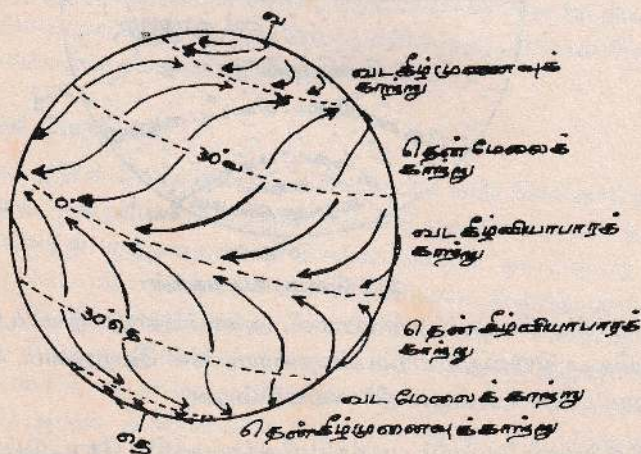 வ
வடகீழ்முனைவுக்
காற்று
30°வ
தென்மேலைக்
காற்று
0
வடகீழ்வியாபாரக்
காற்று
30°தெ
தென்கீழ்வியாபாரக்
காற்று
வடமேலைக் காற்று
தென்கீழ்முனைவுக்காற்று
தெ